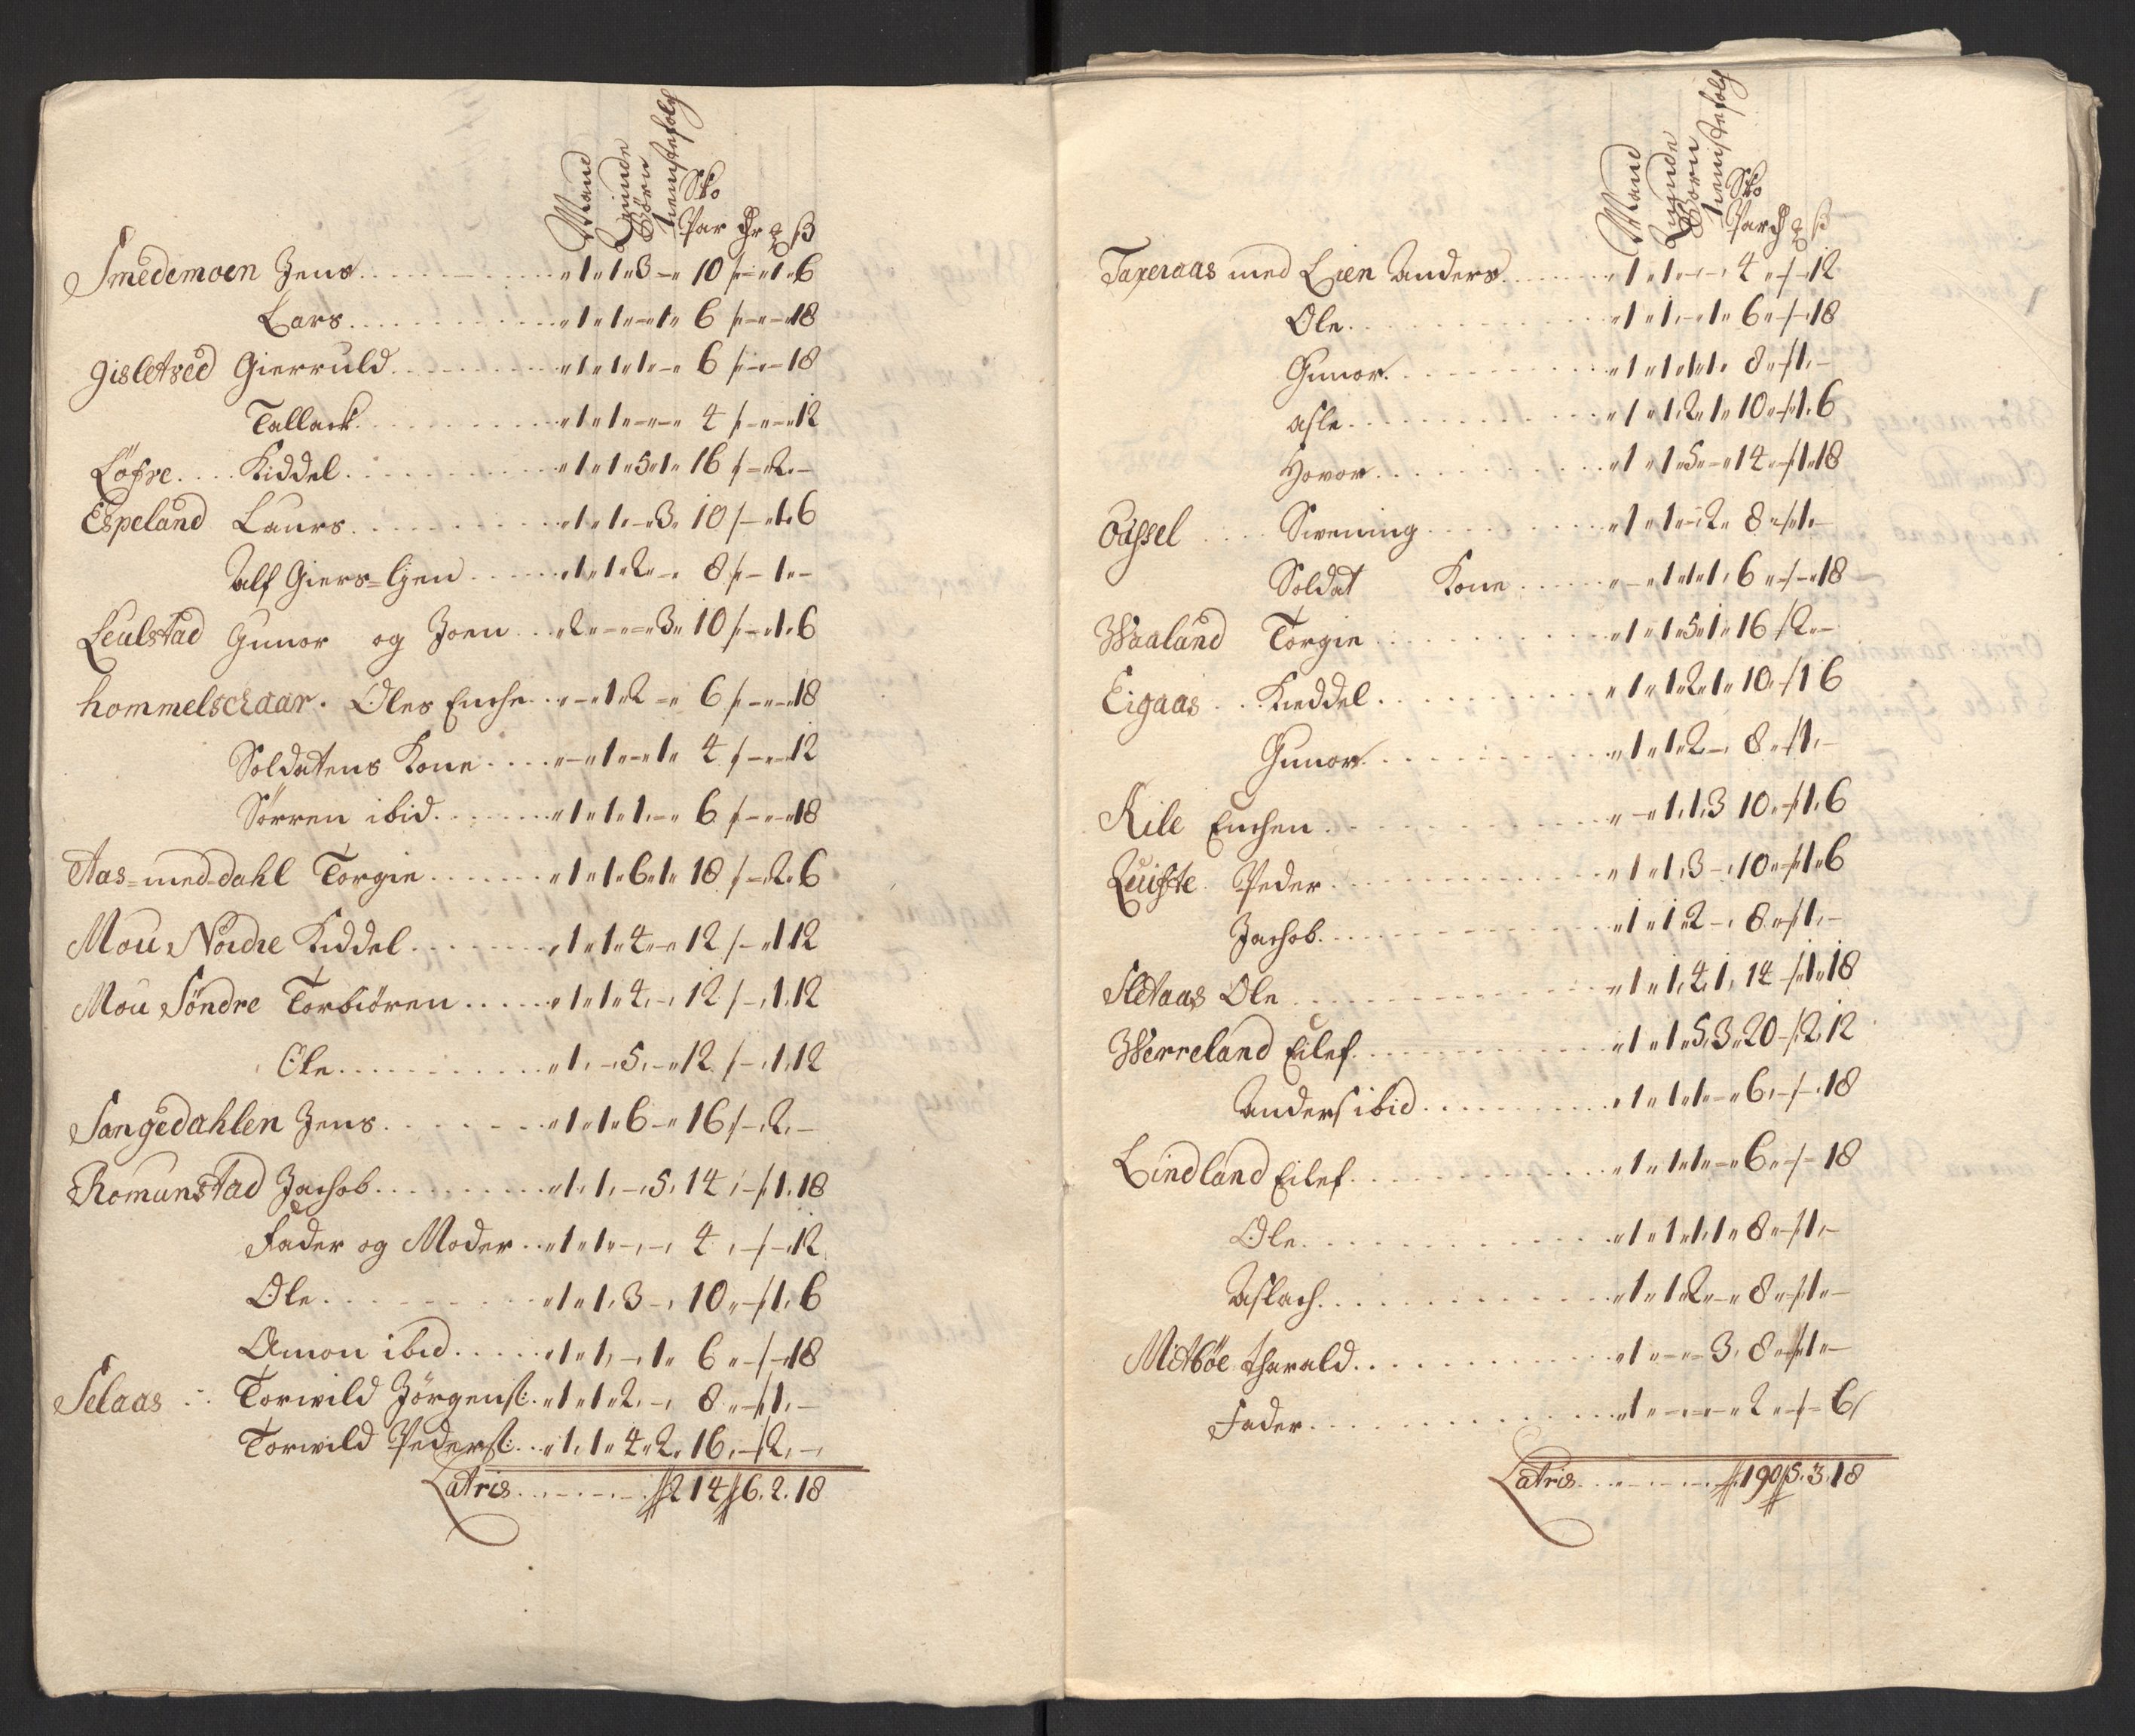 Mand
Quinde
Börn
Tienistefolch
Sko
Par
Smedemoen Jens . . . 1 1 3 - 10 - 1 6
Lars . . . 1 1 - 1 6 - - 18
Gisletved Gierruld . . . 1 1 1 - 6 - - 18
Tallack . . . 1 1 - - 4 - - 12
Löfre . . . Kiddel . . . 1 1 5 1 16 - 2 -
Espeland Laurs . . . 1 1 - 3 10 - 1 6
Alf . . . 1 1 2 - 8 - 1 -
Leulstad Gunor og Joen . . . 2 - - 3 10 - 1 6
hommelschaar . Oles Enche . . . - 1 2 - 6 - - 18
Soldatens Kone . . . - 1 - 1 4 - - 12
Sörren ibid . . . 1 1 1 - 6 - - 18
Aas=med=dahl Torgie . . . 1 1 6 1 18 - 2 6
Mou Nordre Kiddel . . . 1 1 4 - 12 - 1 12
Mou Söndre Torbiören . . . 1 1 4 - 12 - 1 12
Ole . . . 1 - 5 - 12 - 1 12
Sangedahlen Jens . . . 1 1 6 - 16 - 2 -
Romunstad Jachob . . . 1 1 - 5 14 - 1 18
Fader og Moder . . . 1 1 - - 4 - - 12
Ole . . . 1 1 3 - 10 - 1 6
Amon ibid . . . 1 1 - 1 6 - - 18
Selaas . . Torwild Jörgens: . . . 1 1 2 - 8 - 1 -
Torwild Peders: . . . 1 1 4 2 16 - 2 -
Latris . . . 214 6 . 2 . 18
Mand
Quinde
Börn
Tienistefolch
Sko
Par
Taxeraas med Lien Anders . . . 1 1 - - 4 - - 12
Ole . . . 1 1 - 1 6 - - 18
Gunor . . . 1 1 1 1 8 - 1 -
Asle . . . 1 1 2 1 10 - 1 6
Hovor . . . 1 1 5 - 14 - 1 18
Svening . . . 1 1 - 2 8 - 1 -
Soldat Kone . . . - 1 1 1 6 - - 18
Waaland Torgie . . . 1 1 5 1 16 2 -
Eigaas . . Kieddel . . . 1 1 2 1 10 - 1 6
Gunor . . . 1 1 2 - 8 - 1 -
Rile Enchen . . . - 1 1 3 10 - 1 6
Quifte Peder . . . 1 1 3 - 10 - 1 6
Jachob . . . 1 1 2 - 8 - 1 -
Sletaas Ole . . . 1 1 4 1 14 - 1 18
Werreland Eilef . . . 1 1 5 3 20 - 2 12
Anders ibid . . . 1 1 1 - 6 - - 18
Lindland Eilef . . . 1 1 1 - 6 - - 18
Ole . . . 1 1 1 1 8 - 1 -
Aslach . . . 1 1 2 - 8 - 1 -
Mitböe Harald . . . 1 - - 3 8 - 1 -
Fader . . . 1 - - - 2 - - 6
Latris . . . 190 5 . 3 . 18